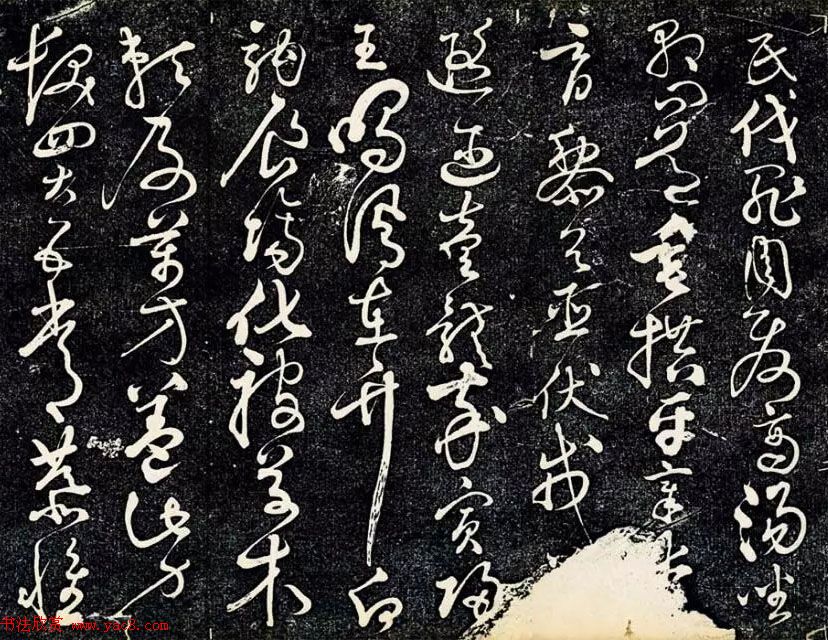 民伐罪周發商湯坐
朝問道垂拱平章
育黎首臣伏戎
遐迩壹體率賓歸
王鳴鳳在竹白
駒食場化被草木
賴及萬方蓋此身
髮四大五常恭惟
书法欣赏 www.yac8.com